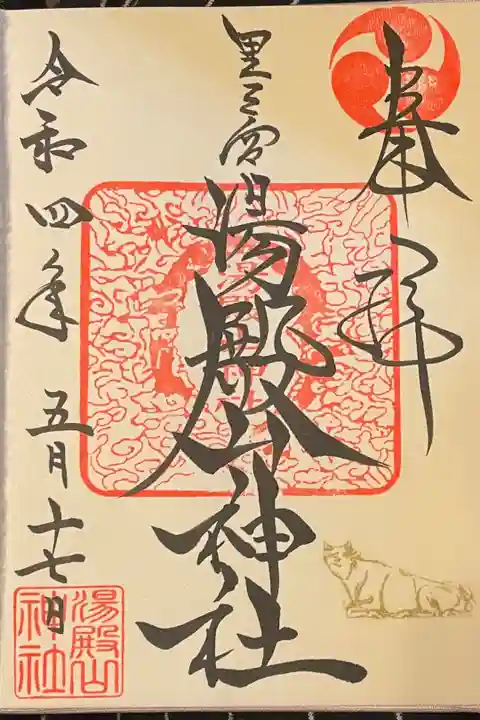 奉拝
里之宮
湯殿山神社
令和四年五月十七日
湯殿山
神社